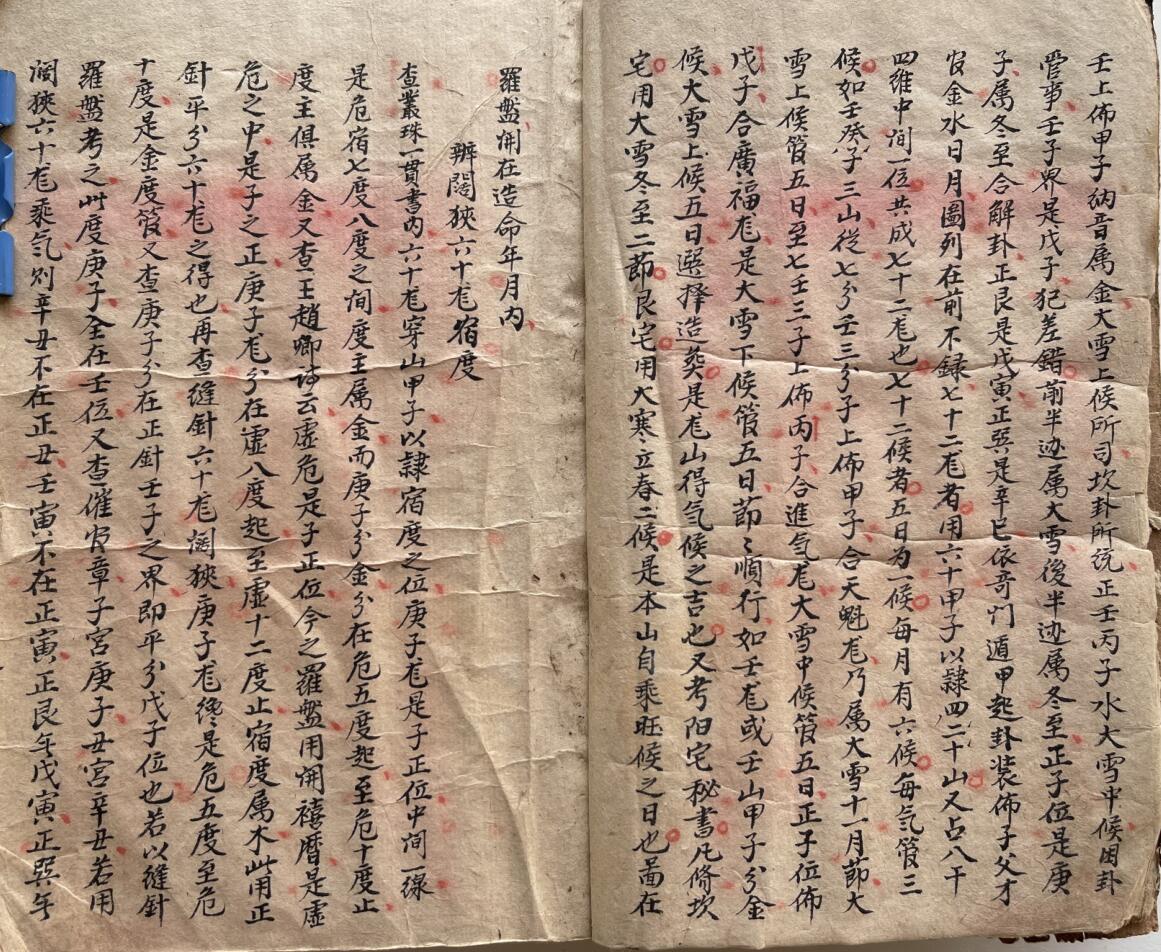 壬上佈甲子納音属金大雪上候所司坎卦所统正壬丙子水大雪中候困卦
管事壬子界是戊子犯差錯前半边属大雪後半边属冬至正子位是庚
子属冬至合解卦正艮是戊寅正巽是辛巳依奇门遁甲起卦装佈子父才
官金水日月圖列在前不録七十二龙者用六十甲子以隷四二十山又占八干
四維中间一位共成七十二龙也七十二候者五日为一候每月有六候每気管三
候如壬癸子三山從七分壬三分子上佈甲子合天魁龙乃属大雪十一月節大
雪上候管五日至七壬三子上佈丙子合進気龙大雪中候管五日正子位佈
戊子合廣福龙是大雪下候管五日節々順行如壬龙或壬山甲子分金
候大雪上候五日選择造葬是龙山得気候之吉也又考阳宅秘書凡修坎
宅用大雪冬至二節艮宅用大寒立春二候是本山自乘旺候之日也啚在
羅盤開在造命年月内
辦闊狹六十龙宿度
查叢珠一貫書内六十龙穿山甲子以隷宿度之位庚子龙是子正位中间一線
是危宿七度八度之间度主属金而庚子分金分在危五度起至危十度止
度主俱属金又查王趙卿诗云虚危是子正位今之羅盤用開禧曆是虚
危之中是子之正庚子龙分在虚八度起至虚十二度止宿度属木此用正
針平分六十龙之得也再查缝針六十龙闊狹庚子龙終是危五度至危
十度是金度管又查庚子分在正針壬子之界即平分戊子位也若以缝針
羅盤考之此度庚子全在壬位又查催官章子宮庚子丑宮辛丑若用
闊狹六十龙乘気则辛丑不在正丑壬寅不在正寅正艮午戊寅正巽午